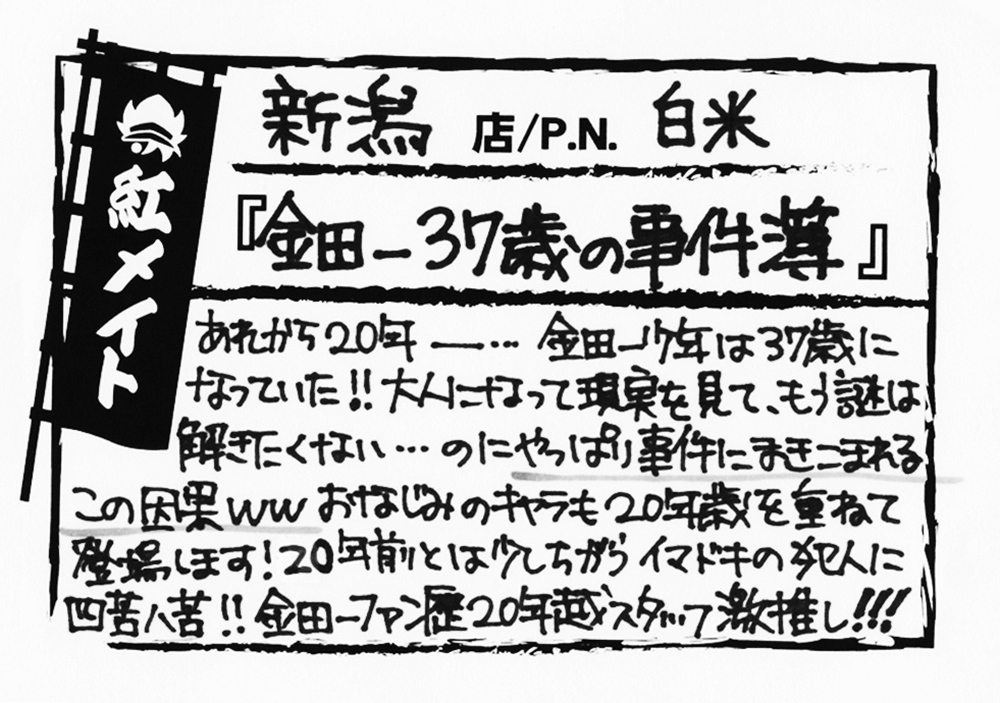 紅メイト
新潟 店/P.N. 白米
『金田一37歳の事件簿』
あれから20年―… 金田一少年は37歳に
なっていた!!大人になって現実を見て、もう謎は
解きたくない…のにやっぱり事件にまきこまれる
この因果ww おなじみのキャラも20年歳を重ねて
登場します!20年前とは少しちがうイマドキの犯人に
四苦八苦!!金田一ファン歴20年越スタッフ激推し!!!